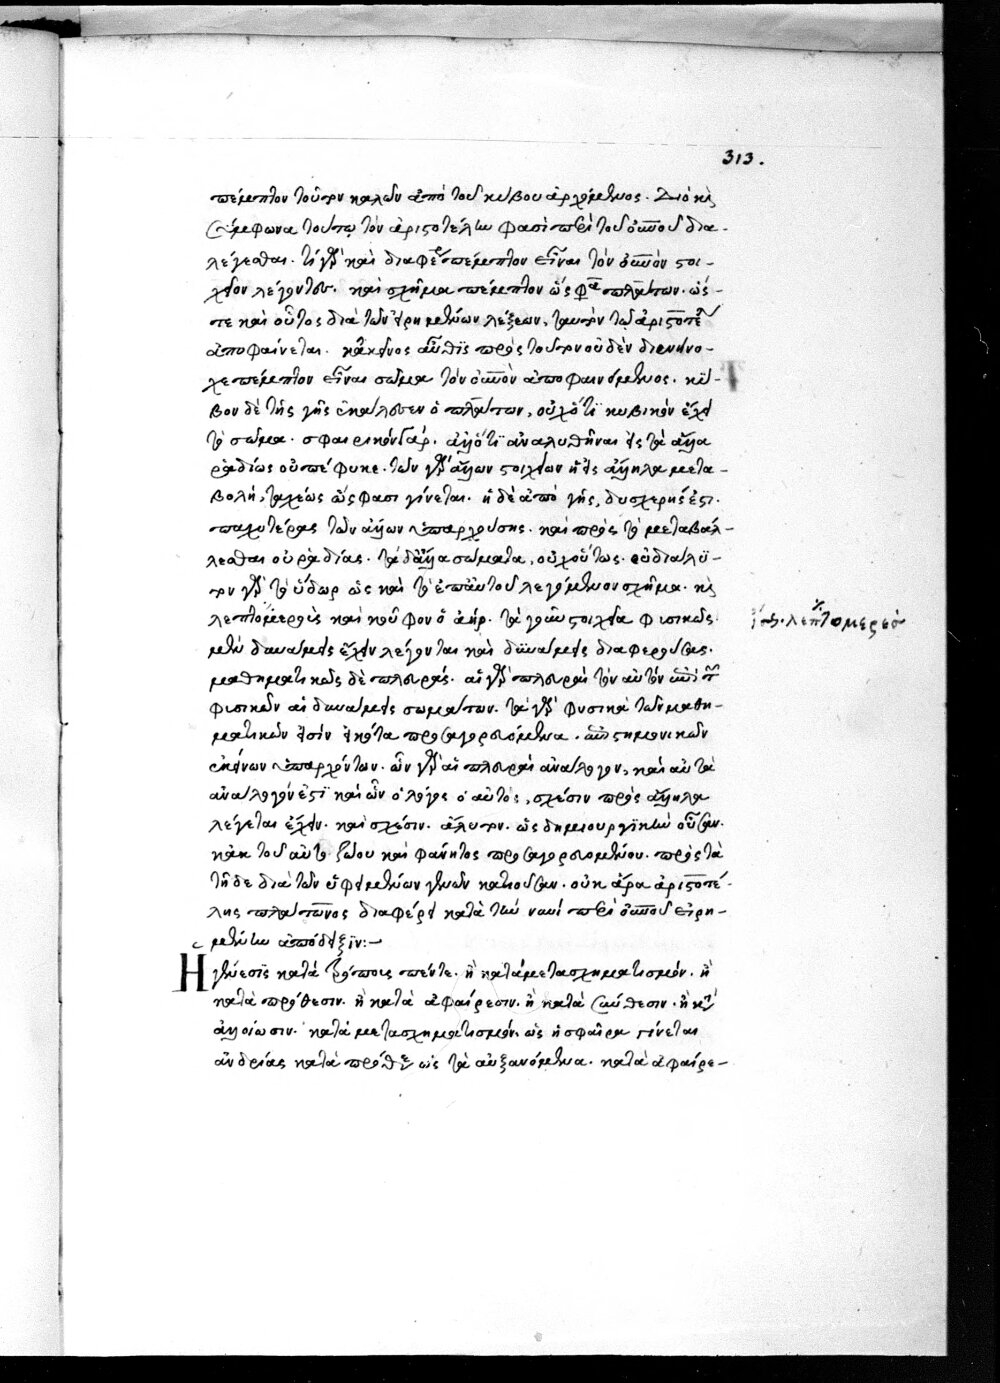 313.
πέμπτον τοῦτον καλῶν ἀπὸ τοῦ κύβου ἀρχόμενος. Διὸ καὶ
σύμφωνα τούτω τὸν ἀριστοτέλην φασὶ περὶ τοῦ οὐνοῦ δια-
λέγεσθαι. τί γὰρ καὶ διαφέρει πέμπτον εἶναι τὸν οὐνὸν στοι-
χεῖον λέγοντος. καὶ σχῆμα πέμπτον ὥς φησι πλάτων. ὥσ-
τε καὶ οὗτος διὰ τῶν εἰρημένων λέξεων, ταυτὸν τῶ ἀριστοτέλει
ἀποφαίνεται. κἀκεῖνος αὖθις πρὸς τοῦτον οὐδὲν διενήνο-
χε πέμπτον εἶναι σῶμα τὸν οὐνὸν ἀποφαινόμενος. κύ-
βον δὲ τῆς γῆς ἐκάλεσεν ὁ πλάτων, οὐχ ὅτι κυβικὸν ἔχει
τὸ σῶμα. σφαιρικὸν γάρ. ἀλλ' ὅτι ἀναλυθῆναι εἰς τὰ ἄλλα
ῥαδίως οὐ πέφυκε. τῶν γὰρ ἄλλων στοιχείων ἡ εἰς ἄλληλα μετα-
βολὴ, ταχέως ὥς φασι γίνεται. ἡ δὲ ἀπὸ γῆς, δυσχερής ἐστι.
παχυτέρας τῶν ἄλλων ὑπαρχούσης. καὶ πρὸς τὸ μεταβάλ-
λεσθαι οὐ ῥαδίας. τὰ δ' ἄλλα σώματα, οὐχ οὕτως. εὐδιάλυ-
τον γὰρ τὸ ὕδωρ ὡς καὶ τὸ ἐπ' αὐτοῦ λεγόμενον σχῆμα. καὶ
λεπτομερὴς καὶ κοῦφον ὁ ἀήρ. τὰ γοῦν στοιχεῖα φυσικῶς
μὲν δυνάμεις ἔχειν λέγονται καὶ δυνάμεις διαφερούσας.
μαθηματικῶς δὲ πλευράς. αἱ γὰρ πλευραὶ τὸν αὐτὸν
φυσικῶν αἱ δυνάμεις σωμάτων. τὰ γὰρ φυσικὰ τῶν μαθη-
ματικῶν εἰσὶν εἰκότα προσαγορευόμενα. ἐπιστημονικῶν
ἐκείνων ὑπαρχόντων. ὧν γὰρ αἱ πλευραὶ ἀνάλογον, καὶ αὐτὰ
ἀνάλογόν ἐστι καὶ ὧν ὁ λόγος ὁ αὐτὸς, σχέσιν πρὸς ἄλληλα
λέγεται ἔχειν. καὶ σχέσιν. ἄλυτον. ὡς δημιουργικὴν οὖσαν.
κἀκ τοῦ αὐτοζώου καὶ φάνητος προσαγορευομένου. πρὸς τὰ
τῆδε διὰ τῶν ὑφειμένων γενῶν κατιοῦσαν. οὐκ ἄρα ἀριστοτέ-
λης πλάτωνος διαφέρει κατὰ τὴν νυνὶ περὶ οὐνοῦ εἰρη-
μένην ἀπόδειξιν:-
Ἡ γένεσις κατὰ τρόπους πέντε. ἢ κατὰ μετασχηματισμόν. ἢ
κατὰ πρόσθεσιν. ἢ κατὰ ἀφαίρεσιν. ἢ κατὰ σύνθεσιν. ἢ κατ'
ἀλλοίωσιν. κατὰ μετασχηματισμόν. ὡς ἡ σφαῖρα γίνεται
ἀνδριάς κατὰ πρόσθεσιν ὡς τὰ αὐξανόμενα. κατὰ ἀφαίρε-
ἴσως. λεπτομερὲς